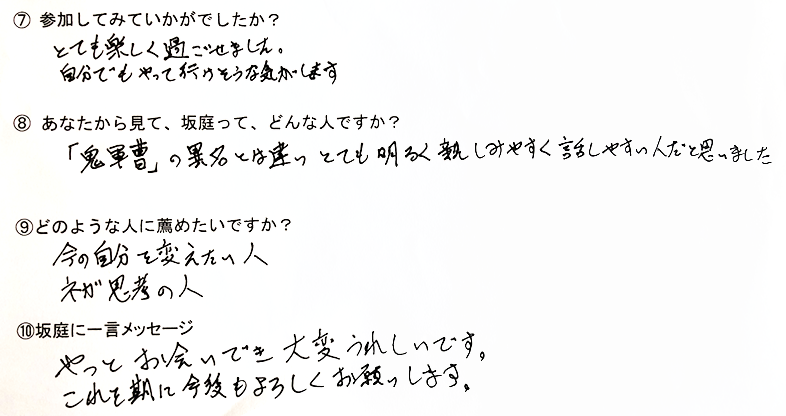 ⑦ 参加してみていかがでしたか？
とても楽しく過ごせました。
自分でもやって行けそうな気がします
⑧ あなたから見て、坂庭って、どんな人ですか？
「鬼軍曹」の異名とは違い とても明るく親しみやすく話しやすい人だと思いました
⑨どのような人に薦めたいですか？
今の自分を変えたい人
ネガ思考の人
⑩坂庭に一言メッセージ
やっと お会いでき 大変うれしいです。
これを期に今後もよろしくお願いします。